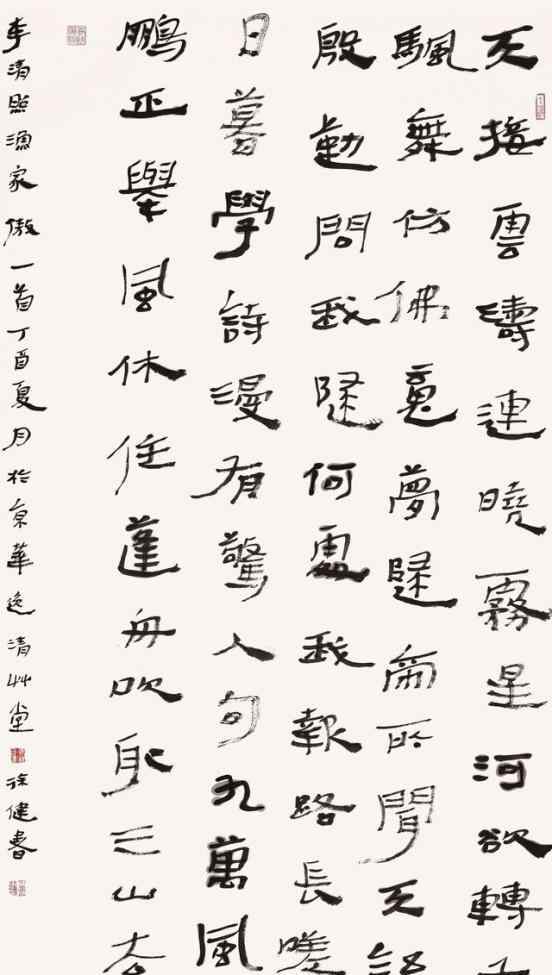 天接雲濤連曉霧星河欲轉
颿舞仿佛魂夢歸帝所聞天語
殷勤問我歸何處我報路長嗟
日暮學詩漫有驚人句九萬風
鵬正舉風休住蓬舟吹取三山去
李清照漁家傲一首丁酉夏月於京華逸清艸堂徐健書